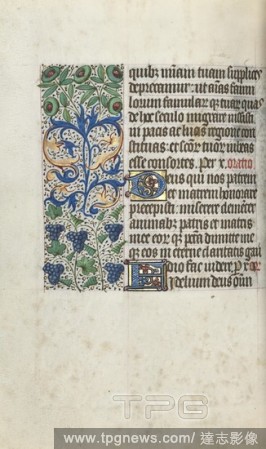 quibz miam tuam supplices
deprecamur: ut aias famu
lorum famular qz tuar quas
de hoc seculo migrare iussisti
in pacis ac lucis regione con
stituas: et sctor tuor iubeas
esse consortes. Per x. oratio.
Deus qui nos patrem
et matrem honorare
precepisti: miserere clemeter
animabz patris et matris
mee eor qz pcta dimitte me
qz eos in eterne claritatis gau
dio fac videre. P x or
Fidelium deus oim
TPG
www.tpgnews.com / 達志影像